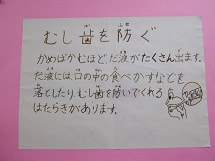 むし歯を防ぐ
かめばかむほど、だ液がたくさん出ます。
だ液には、口の中の食べかすなどを
落としたり、むし歯を防いでくれる
はたらきがあります。